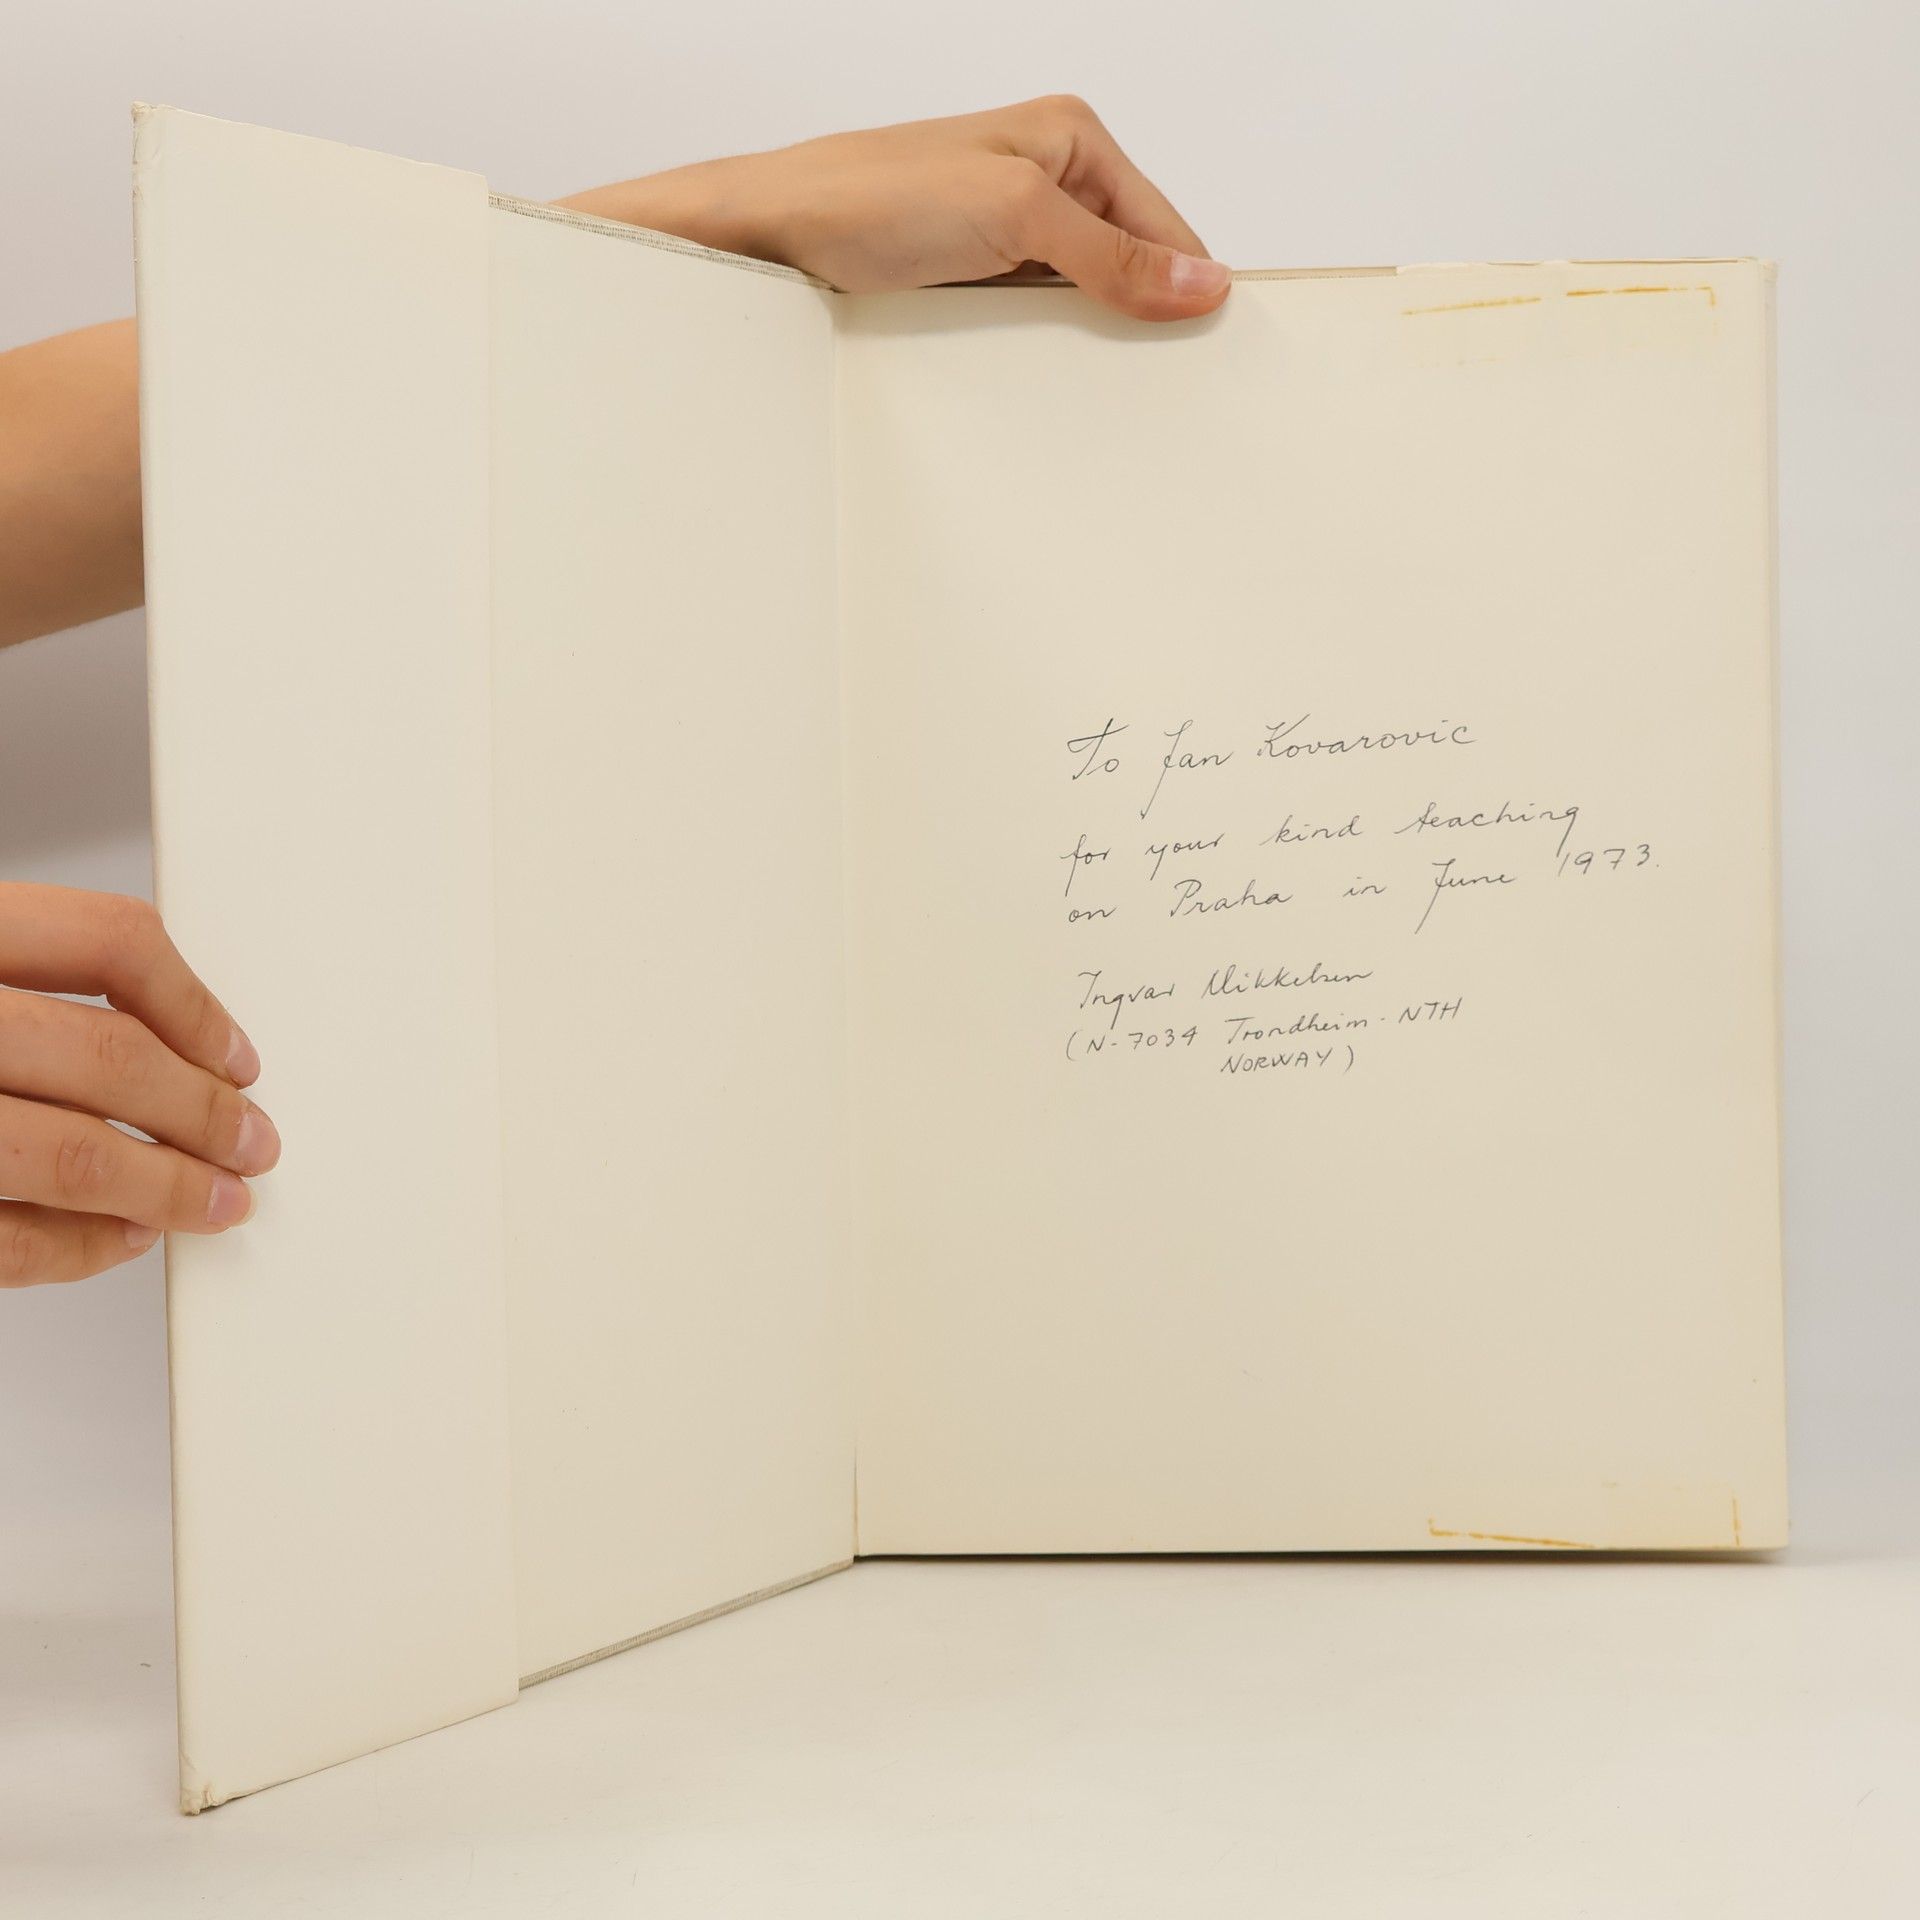 To Jan Kovarovic
for your kind teaching
on Praha in June 1973.
Ingvar Mikkelsen
(N-7034 Trondheim-NTH
NORWAY)